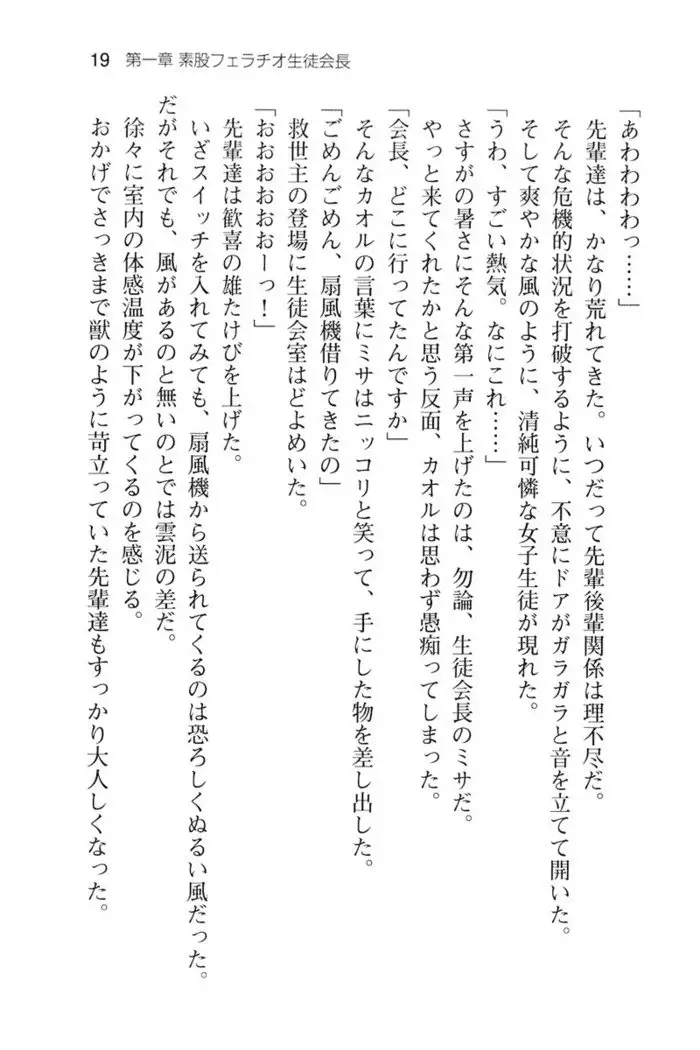 19
「あわわわわっ……」
先輩達は、かなり荒れてきた。いつだって先輩後輩関係は理不尽だ。
そんな危機的状況を打破するように、不意にドアがガラガラと音を立てて開いた。
そして爽やかな風のように、清純可憐な女子生徒が現れた。
「うわ、すごい熱気。なにこれ……」
さすがの暑さにそんな第一声を上げたのは、勿論、生徒会長のミサだ。
やっと来てくれたかと思う反面、カオルは思わず愚痴ってしまった。
「会長、どこに行ってたんですか」
そんなカオルの言葉にミサはニッコリと笑って、手にした物を差し出した。
「ごめんごめん、扇風機借りてきたの」
救世主の登場に生徒会室はどよめいた。
「おおおおおおーっ！」
先輩達は歓喜の雄たけびを上げた。
いざスイッチを入れてみても、扇風機から送られてくるのは恐ろしくぬるい風だった。
だがそれでも、風があるのと無いのとでは雲泥の差だ。
徐々に室内の体感温度が下がってくるのを感じる。
おかげでさっきまで獣のように苛立っていた先輩達もすっかり大人しくなった。